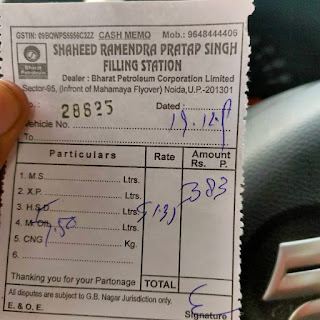 GSTIN: 09BQWPS8856C2ZZ CASH MEMO Mob.: 9648444406
SHAHEED RAMENDRA PRATAP SINGH
FILLING STATION
Bharat Petroleum
Dealer : Bharat Petroleum Corporation Limited
Sector-95, (Infront of Mahamaya Flyover) Noida, U.P.-201301
28825 Dated
Vehicle No.
To
Particulars Rate Amount
Rs. P.
1. M.S. Ltrs. 383
2. X.P. Ltrs.
3. H.S.D. Ltrs.
4. Ltrs.
5. CNG Kg.
6.
Thanking you for your Partonage TOTAL
All disputes are subject to G.B. Nagar Jurisdiction only.
E. & O. E. Signature